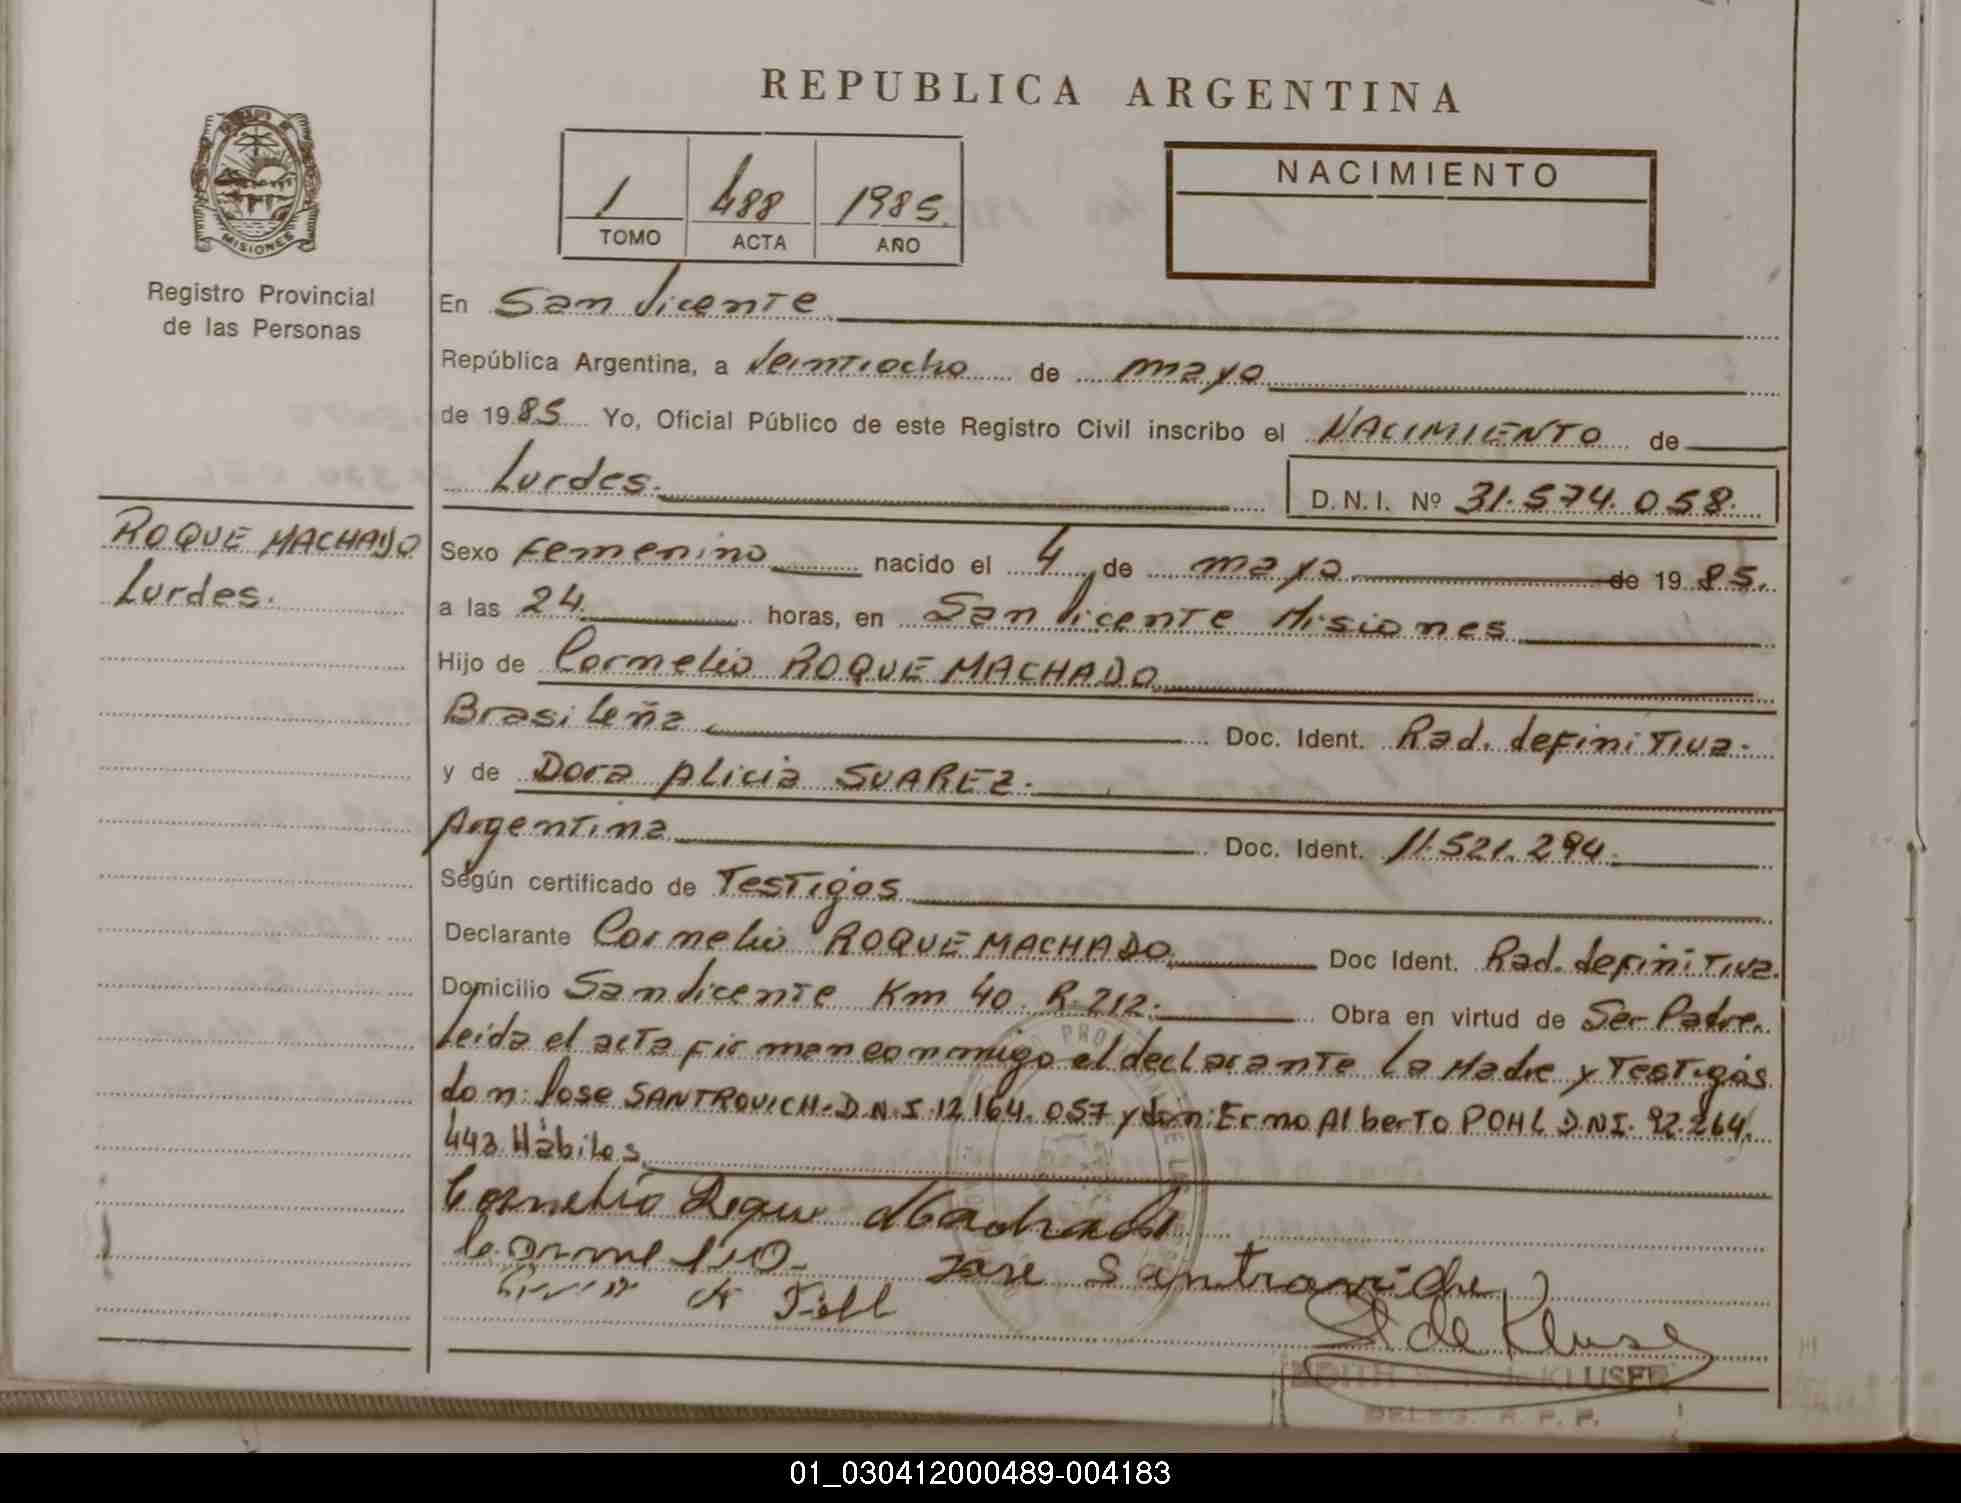 REPUBLICA ARGENTINA
NACIMIENTO
1 488 1985.
TOMO ACTA AÑO
MISIONES
Registro Provincial
de las Personas
ROQUE MACHADO
Lurdes.
En San Vicente
República Argentina, a Veintiocho de mayo
de 1985 Yo, Oficial Público de este Registro Civil inscribo el NACIMIENTO de
Lurdes. D.N.I. Nº 31.574.058.
Sexo Femenino nacido el 4 de mayo de 1985.
a las 24 horas, en San Vicente Misiones
Hijo de Cornelio ROQUE MACHADO
Brasileña Doc. Ident. Rad. definitiva.
y de Dora Alicia SUAREZ.
Argentina Doc. Ident. 11.521.294.
Según certificado de Testigos
Declarante Cornelio ROQUE MACHADO Doc Ident. Rad. definitiva.
Domicilio San Vicente Km 40 R.212. Obra en virtud de Ser Padre.
Leida el acta firman conmigo el declarante la Madre y Testigos
don: Jose SANTROVICH. D.N.I. 12.164.057 y don: Erno Alberto POHL D.N.I. 92.264.
443 Hábiles
Cornelio Roque Machado
Jose Santroviche
de Kluser
KLUSER
DELEG. R. P. P.
01_030412000489-004183